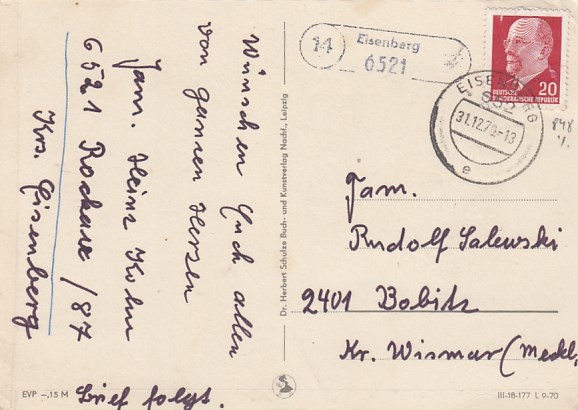 Wünschen Euch allen
von ganzen Herzen
Fam. Heinz Kohn
6521 Rochaue/87
Krs. Eisenberg
Brief folgt.
EVP –,15 M
Dr. Herbert Schulze Buch- und Kunstverlag Nachf., Leipzig
14
Eisenberg
6521
EISENBERG
652
31.12.70-13
e
20
DEUTSCHE
DEMOKRATISCHE REPUBLIK
Fam.
Rudolf Salewski
2401 Bobitz
Kr. Wismar (Meckl.
III-18-177 L 9-70